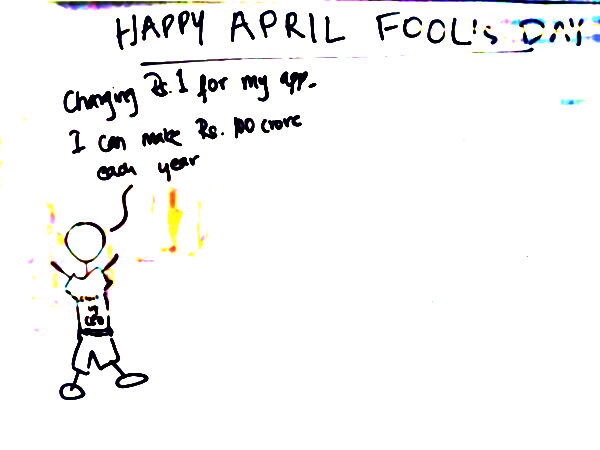 HAPPY APRIL FOOL'S DAY
Charging Rs. 1 for my app.
I can make Rs. 100 crore
each year
up
CEO